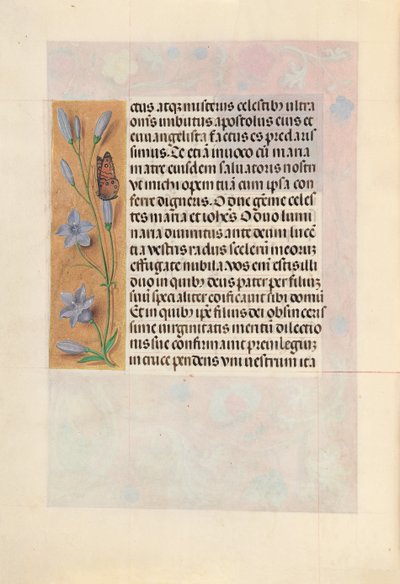 ctus atqȝ misteriis celestibȝ ultra
om̄s imbutus apostolus eius et
euuangelista factus es preclaris
simus. Te etiā inuoco cū maria
matre eiusdem saluatoris nostri
ut michi opem tuā cum ipsa con
ferre digneris. O due gēme celes
tes maria et ioh̄es. O duo lumi
naria diuinitus ante deum lucē
tia vestris radiis scelerū meorum
effugate nubila. Vos em̄ estis illi
duo in quibȝ deus pater per filium
suū specialiter edificauit sibi domū
Et in quibȝ ip̄e filius dei ob sinceris
sime uirginitatis meritū dilectio
nis sue confirmauit priuilegium
in cruce pendens uni uestrum ita